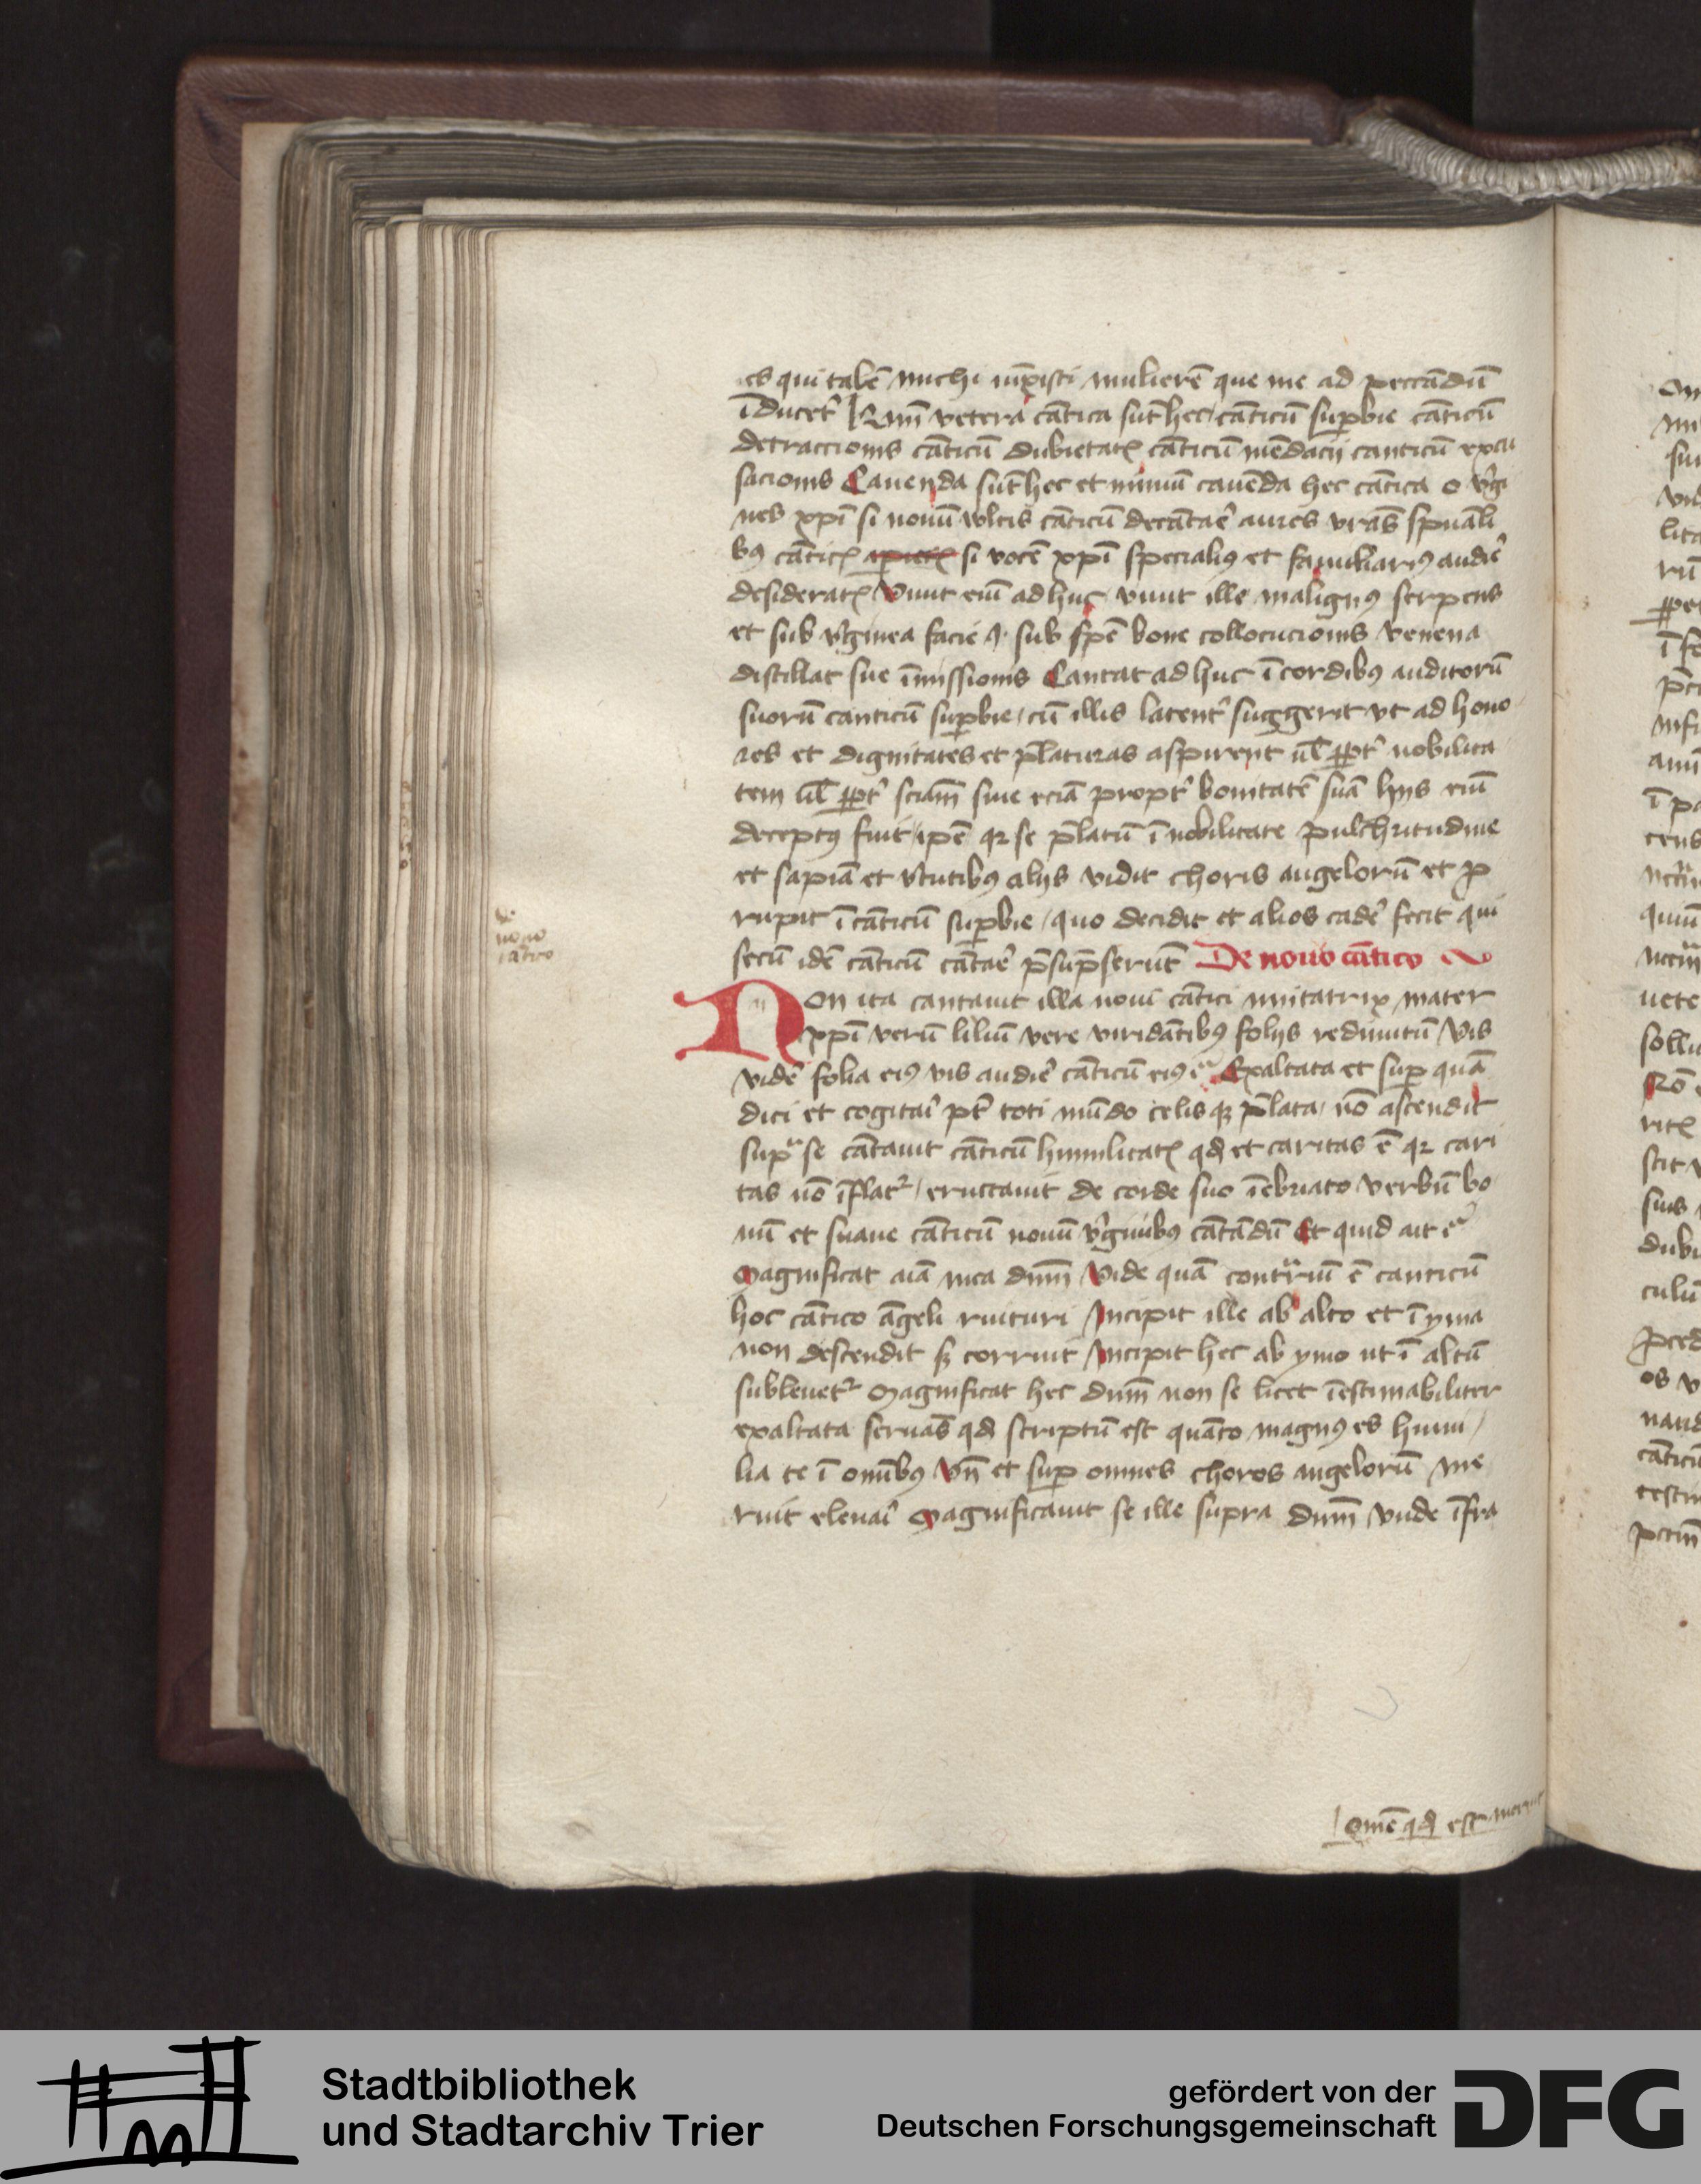 es qui talē michi iūxisti mulierē que me ad peccādū
īducet᷑ Qm̄ vetera cātica sūt hec cāticū suꝑbie cāticū
detraccionis cāticū dubietatꝭ cāticū mēdacii canticū excu
sacionis Cauenda sūt hec et nimiū cauēda hec cātica o v᷑gi
nes xp̄i si nouū wltis cāticū decātae᷑ aures vr̄as sp̄uali
bꝰ cāticꝭ si vocē xp̄i specialiꝰ et familiariꝰ audie᷑
desideratꝭ Viuit em̄ adhuc viuit ille malignꝰ serpens
et sub v᷑ginea facie ⁊ sub spē bone collocucionis venena
distillat sue īmissionis Cantat adhuc ī cordibꝰ auditorū
suorū canticū suꝑbie cū illis latent᷑ suggerit vt ad hono
res et dignitates et p̄laturas aspirent ul̄ ꝓpt᷑ nobilita
tem ul̄ ꝓpt᷑ sciam̄ siue eciā propt᷑ bonitatē suā hijs em̄
deceptꝰ fuit ip̄e qꝛ se p̄latū ī nobilitate pulchritudine
et sapiā et v᷑tutibꝰ alijs vidit choris angelorū et ꝓ
rupit ī cāticū suꝑbie quo decidit et alios cade᷑ fecit qui
secū idē cāticū cātae᷑ p̄sūpserūt De nouo cātico
de
nouo
cātico
Non ita cantauit illa noui cātici imitatrix mater
xp̄i verū liliū vere viridātibꝰ folijs redimitū Vis
vide᷑ folia eiꝰ vis audie᷑ cāticū eiꝰ Exaltata et suꝑ quā
dici et cogitai᷑ pt̄ toti mūdo celis qꝫ p̄lata nō ascendit
supͣ se cātauit cāticū humilitatꝭ qd̄ et caritas ē qꝛ cari
tas nō īflat᷑ eructauit de corde suo īebriato verbū bo
nū et suaue cāticū nouū v᷑ginibꝰ cātādū Et quid ait
Magnificat aīa mea dnm̄ Vide quā contͣriū ē canticū
hoc cātico āgeli ruituri Incipit ille ab alto et ī yma
non descendit sꝫ corruit Incipit hec ab ymo ut ī altū
subleuet᷑ Magnificat hec dnm̄ non se licet īestimabiliter
exaltata seruās qd̄ scriptū est quāto magnꝰ es humi
lia te ī omībꝰ Vn̄ et suꝑ omnes choros angelorū me
ruit eleuai᷑ Magnificauit se ille supra dnm̄ vnde īfra
omē qd̄ est
Stadtbibliothek
und Stadtarchiv Trier
gefördert von der
Deutschen Forschungsgemeinschaft
DFG